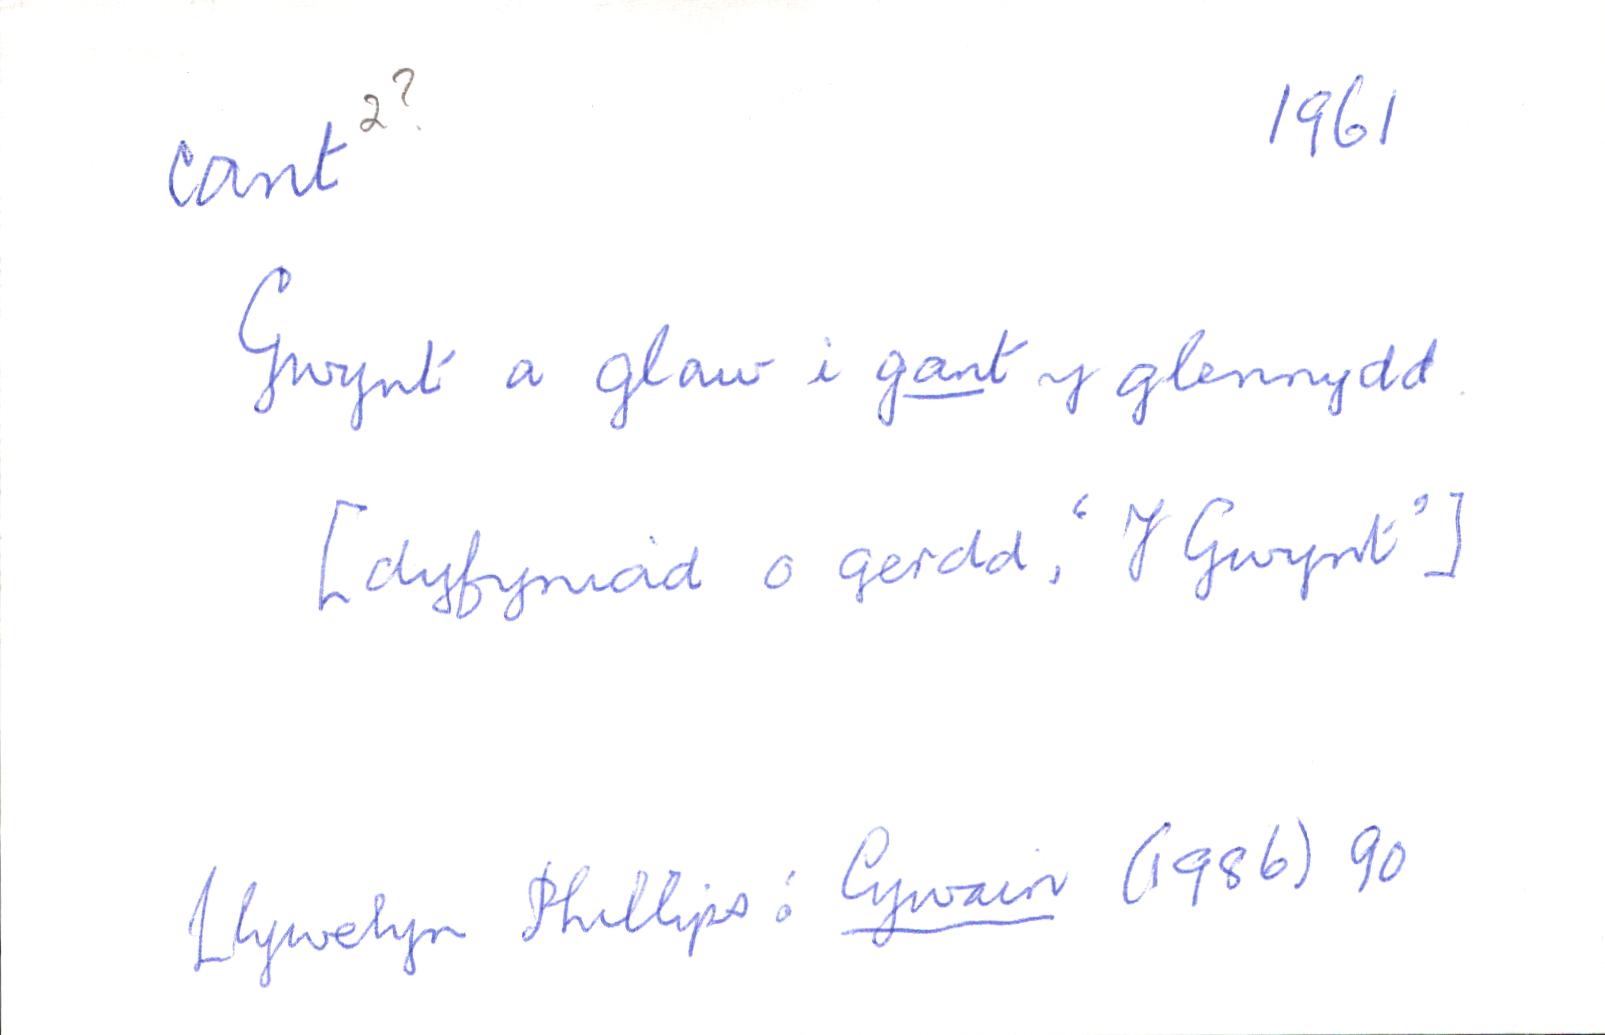 cant 2? 1961
Gwynt a glaw i gant y glennydd.
[dyfyniad o gerdd, ‘Y Gwynt’]
Llywelyn Phillips: Cywain (1986) 90